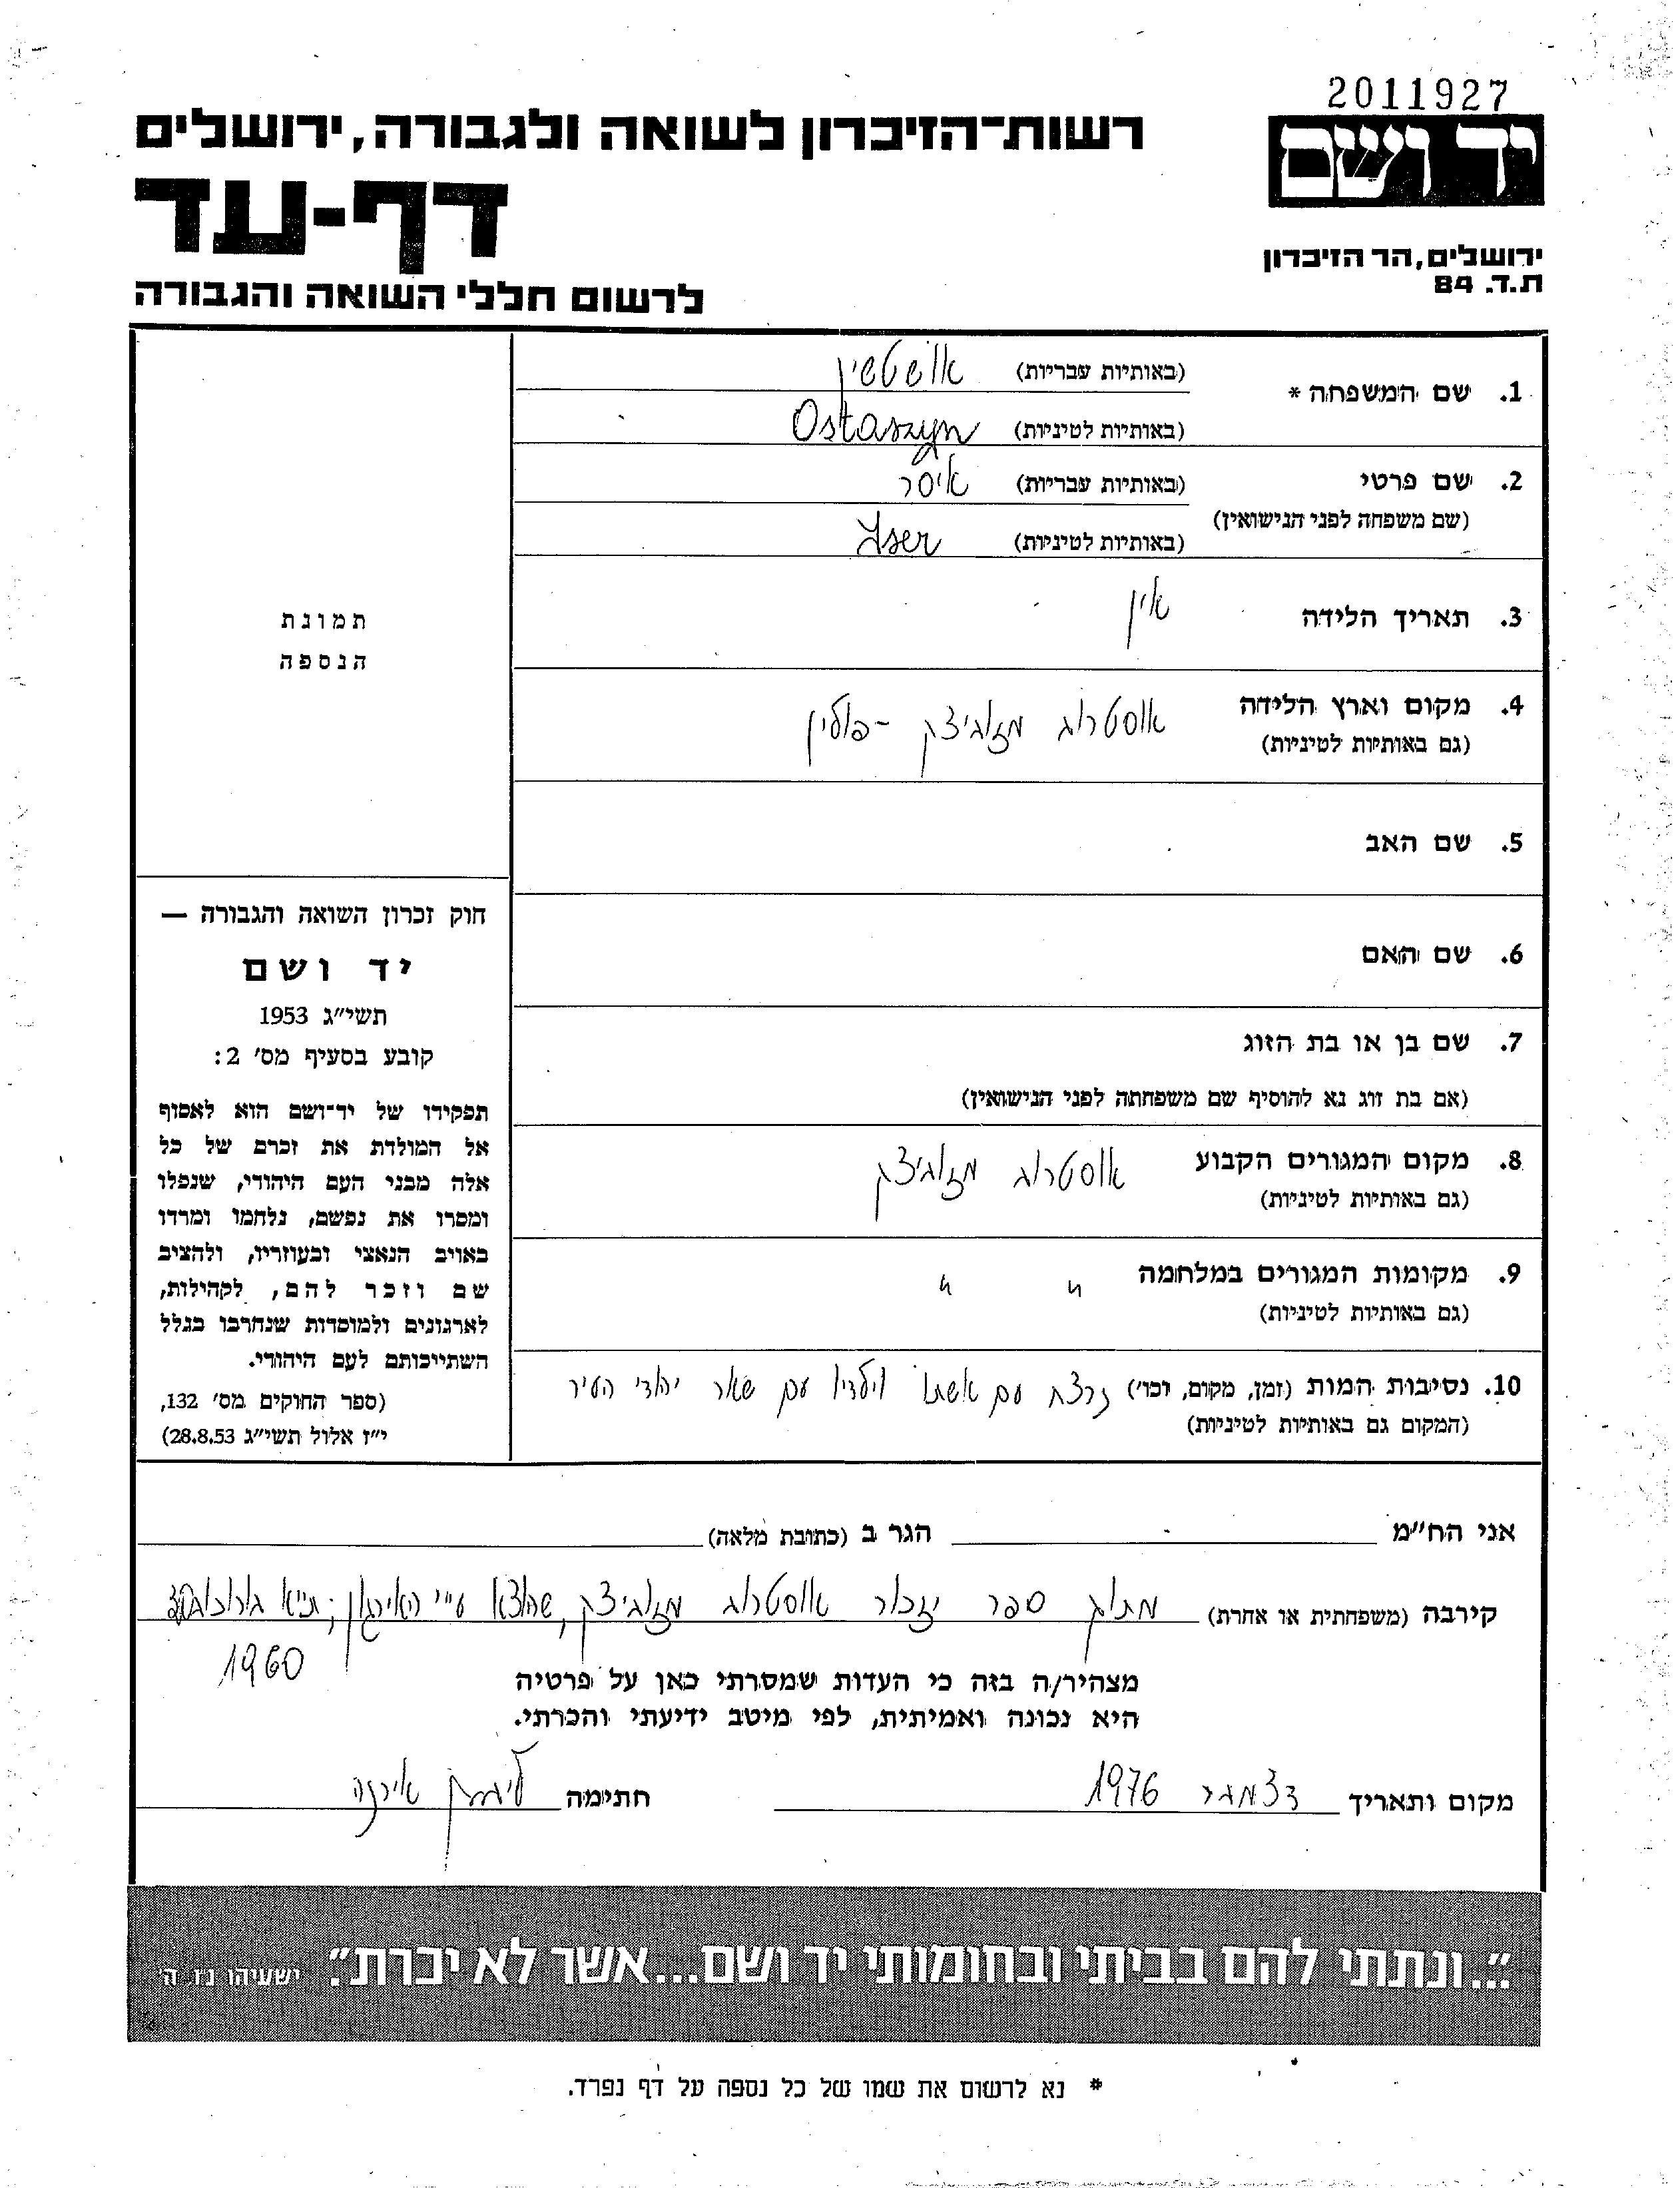 2011927
יד ושם
רשות־הזיכרון לשואה ולגבורה, ירושלים
דף-עד
ירושלים, הר הזיכרון
ת.ד. 84
לרשום חללי השואה והגבורה
1. שם המשפחה * (באותיות עבריות) אושטשין
(באותיות לטיניות) Ostaszyn
2. שם פרטי (באותיות עבריות) איסר
(שם משפחה לפני הנישואין)
(באותיות לטיניות) Iser
3. תאריך הלידה אין
תמונת
הנספה
4. מקום וארץ הלידה אוסטרוג מזוביצק - פולין
(גם באותיות לטיניות)
5. שם האב
6. שם האם
7. שם בן או בת הזוג
(אם בת זוג נא להוסיף שם משפחתה לפני הנישואין)
8. מקום המגורים הקבוע אוסטרוג מזוביצק
(גם באותיות לטיניות)
9. מקומות המגורים במלחמה " "
(גם באותיות לטיניות)
10. נסיבות המות (זמן, מקום, וכו') נרצח עם אשתו וילדיו עם שאר יהודי העיר
(המקום גם באותיות לטיניות)
חוק זכרון השואה והגבורה —
יד ושם
תשי״ג 1953
קובע בסעיף מס' 2:
תפקידו של יד־ושם הוא לאסוף
אל המולדת את זכרם של כל
אלה מבני העם היהודי, שנפלו
ומסרו את נפשם, נלחמו ומרדו
באויב הנאצי ובעוזריו, ולהציב
שם וזכר להם, לקהילות,
לארגונים ולמוסדות שנחרבו בגלל
השתייכותם לעם היהודי.
(ספר החוקים מס' 132,
י״ז אלול תשי״ג 28.8.53)
אני הח״מ הגר ב (כתובת מלאה)
קירבה (משפחתית או אחרת) מתוך ספר יזכור אוסטרוג מזוביצק, שהוצא ע״י האירגון; ת״א
1960
מצהיר/ה בזה כי העדות שמסרתי כאן על פרטיה
היא נכונה ואמיתית, לפי מיטב ידיעתי והכרתי.
מקום ותאריך דצמבר 1976 חתימה אירנה
"...ונתתי להם בביתי ובחומותי יד ושם...אשר לא יכרת". ישעיהו נו, ה'
* נא לרשום את שמו של כל נספה על דף נפרד.